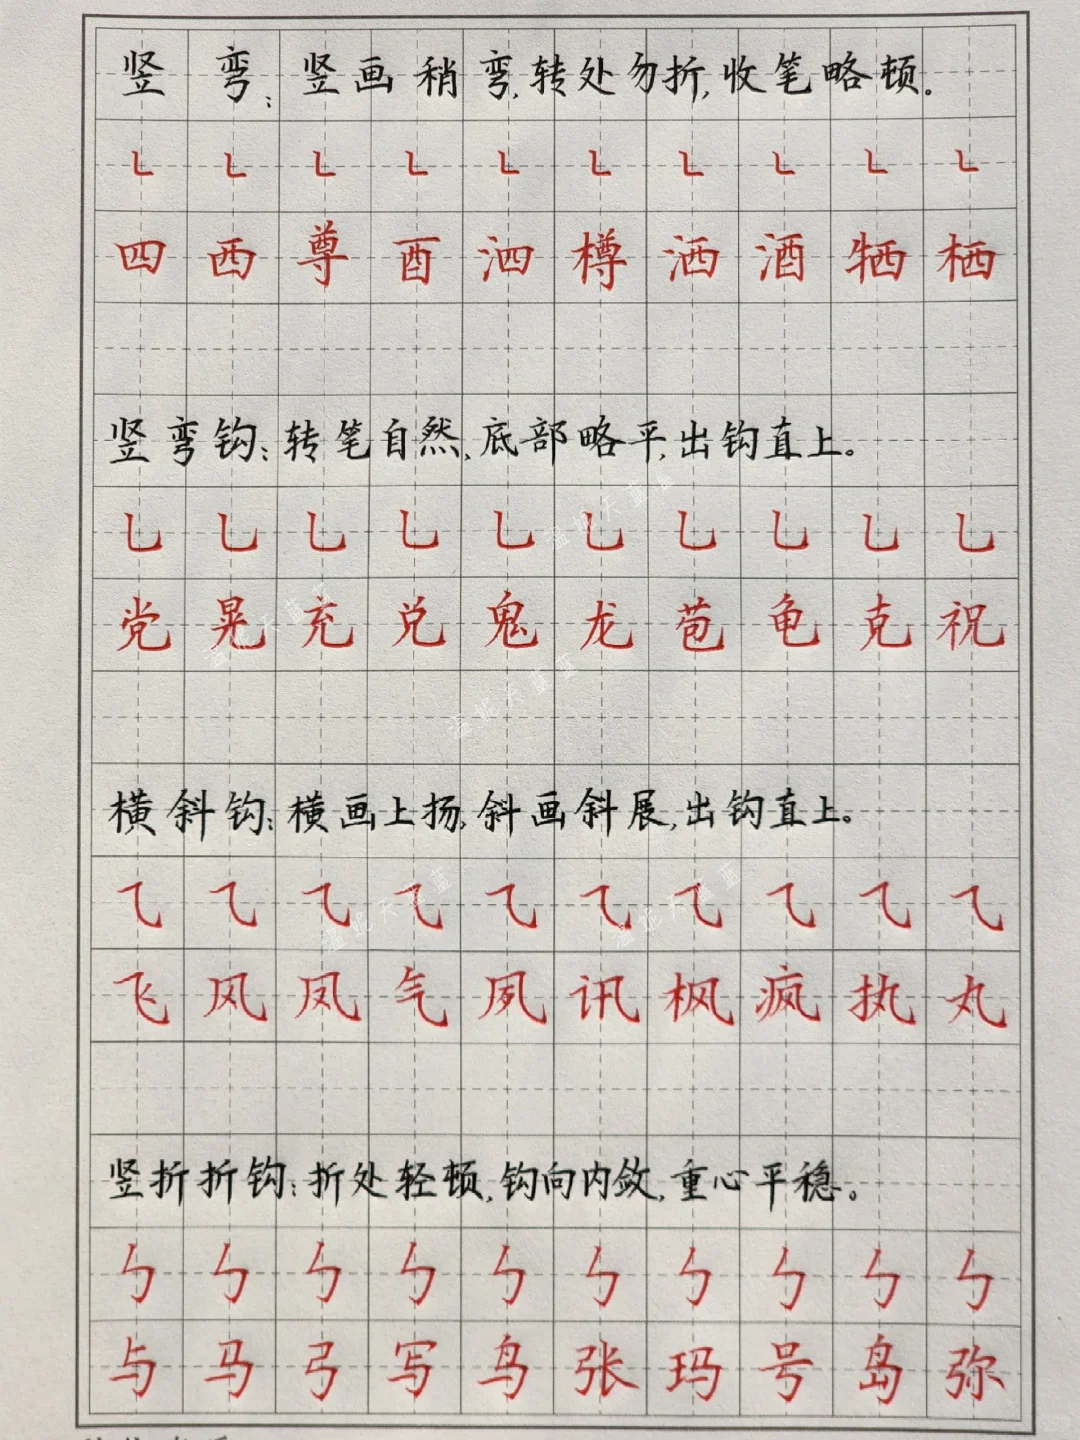 竖弯：竖画稍弯，转处勿折，收笔略顿。
㇄㇄㇄㇄㇄㇄㇄㇄㇄㇄
四西尊酉泗樽洒酒牺栖
竖弯钩：转笔自然，底部略平，出钩直上。
乚乚乚乚乚乚乚乚乚乚
党晃充兑鬼龙苞龟克祝
横斜钩：横画上扬，斜画斜展，出钩直上。
⺄⺄⺄⺄⺄⺄⺄⺄⺄⺄
飞风凤气夙讯枫疯执丸
竖折折钩：折处轻顿，钩向内敛，重心平稳。
㇉㇉㇉㇉㇉㇉㇉㇉㇉㇉
与马弓写鸟张玛号岛弥